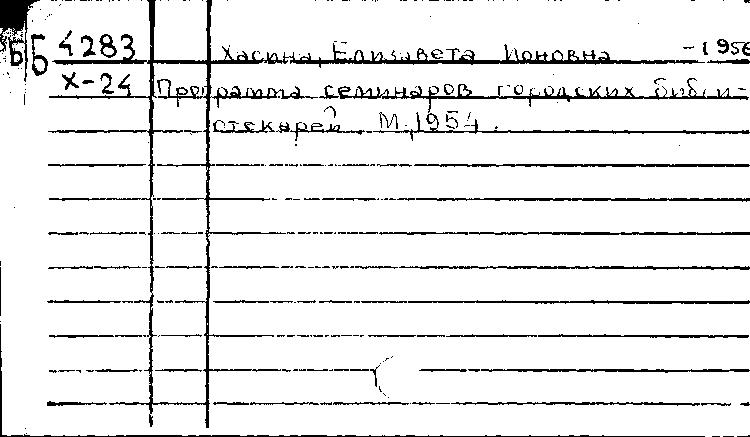 Б Б 4283 Хасина, Елизавета Ионовна -1956
Х-24 Программа семинаров городских библи-
отекарей. М., 1954.